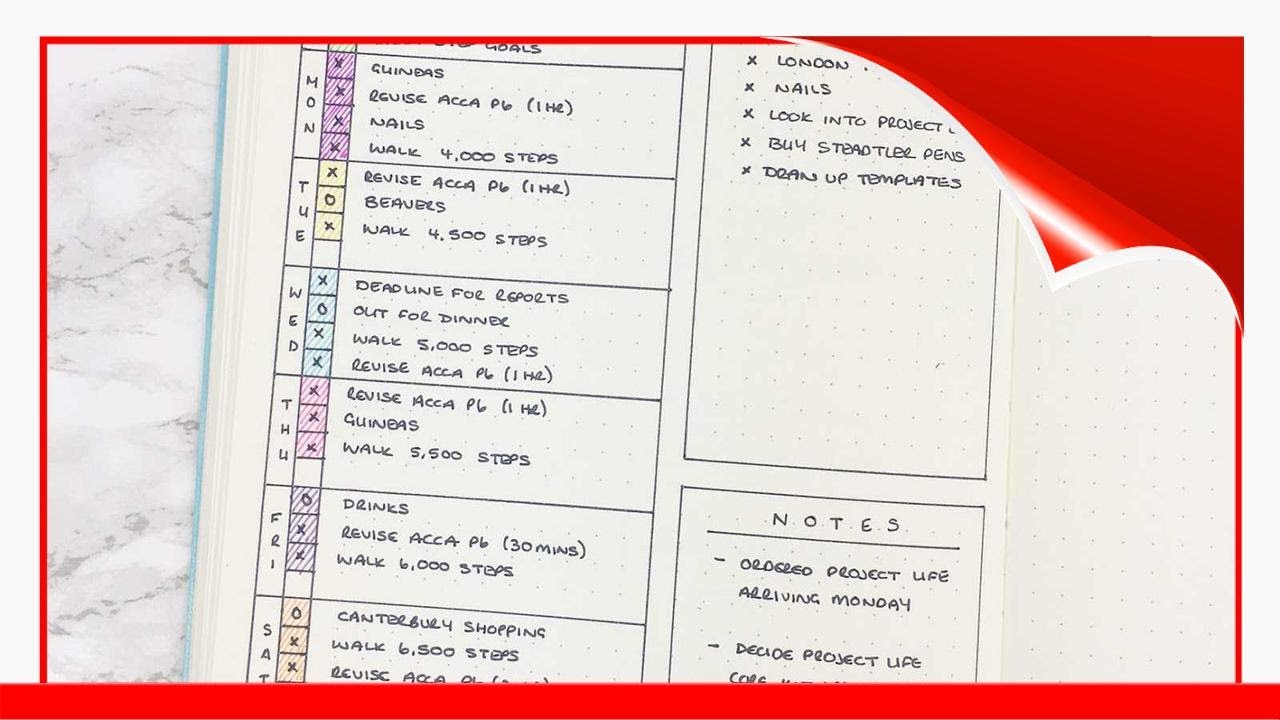 GOALS
MON
GUINEAS
REVISE ACCA P6 (1HR)
NAILS
WALK 4,000 STEPS
TUE
REVISE ACCA P6 (1HR)
BEAVERS
WALK 4,500 STEPS
WED
DEADLINE FOR REPORTS
OUT FOR DINNER
WALK 5,000 STEPS
REVISE ACCA P6 (1HR)
THU
REVISE ACCA P6 (1HR)
GUINEAS
WALK 5,500 STEPS
FRI
DRINKS
REVISE ACCA P6 (30MINS)
WALK 6,000 STEPS
SAT
CANTERBURY SHOPPING
WALK 6,500 STEPS
REVISE ACCA P6
x LONDON
x NAILS
x LOOK INTO PROJECT L
x BUY STEADTLER PENS
x DRAW UP TEMPLATES
NOTES
- ORDERED PROJECT LIFE
ARRIVING MONDAY
- DECIDE PROJECT LIFE